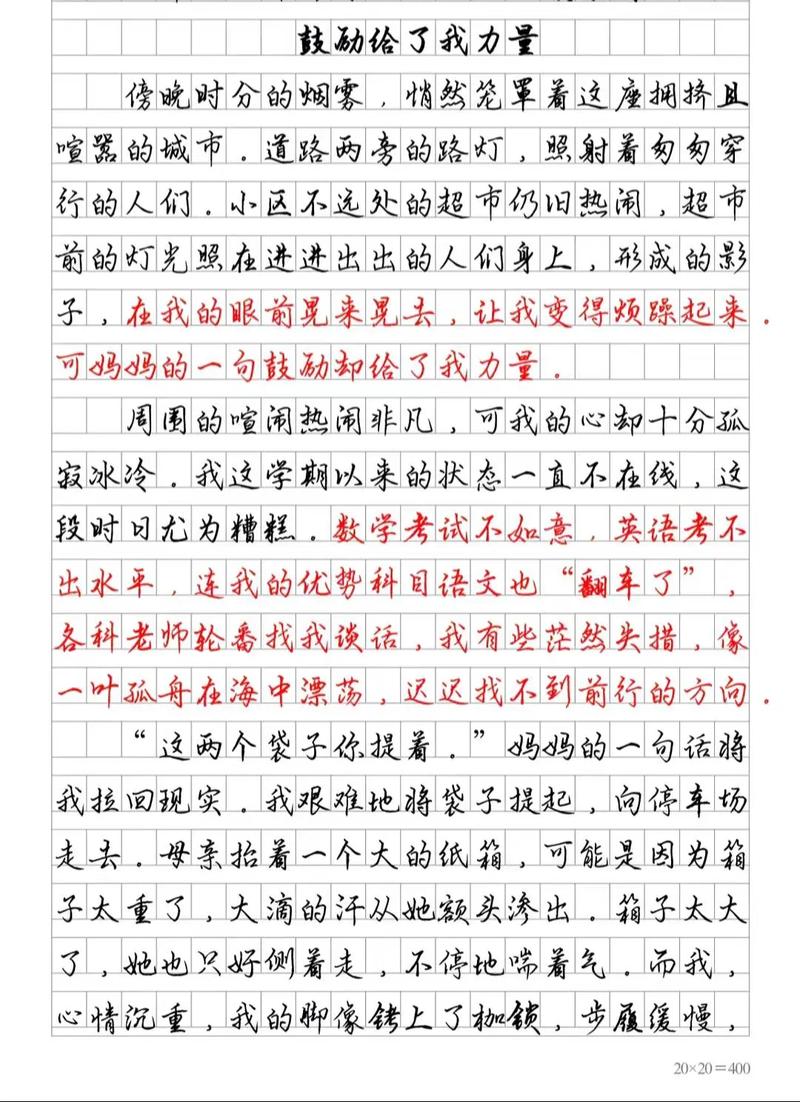 鼓励给了我力量
傍晚时分的烟雾，悄然笼罩着这座拥挤且
喧嚣的城市。道路两旁的路灯，照射着匆匆穿
行的人们。小区不远处的超市仍旧热闹，超市
前的灯光照在进进出出的人们身上，形成的影
子，在我的眼前晃来晃去，让我变得烦躁起来。
可妈妈的一句鼓励却给了我力量。
周围的喧闹热闹非凡，可我的心却十分孤
寂冰冷。我这学期以来的状态一直不在线，这
段时日尤为糟糕。数学考试不如意，英语考不
出水平，连我的优势科目语文也“翻车了”，
各科老师轮番找我谈话，我有些茫然失措，像
一叶孤舟在海中漂荡，迟迟找不到前行的方向。
“这两个袋子你提着。”妈妈的一句话将
我拉回现实。我艰难地将袋子提起，向停车场
走去。母亲抬着一个大的纸箱，可能是因为箱
子太重了，大滴的汗从她额头渗出。箱子太大
了，她也只好侧着走，不停地喘着气。而我，
心情沉重，我的脚像铐上了枷锁，步履缓慢，
20×20=400